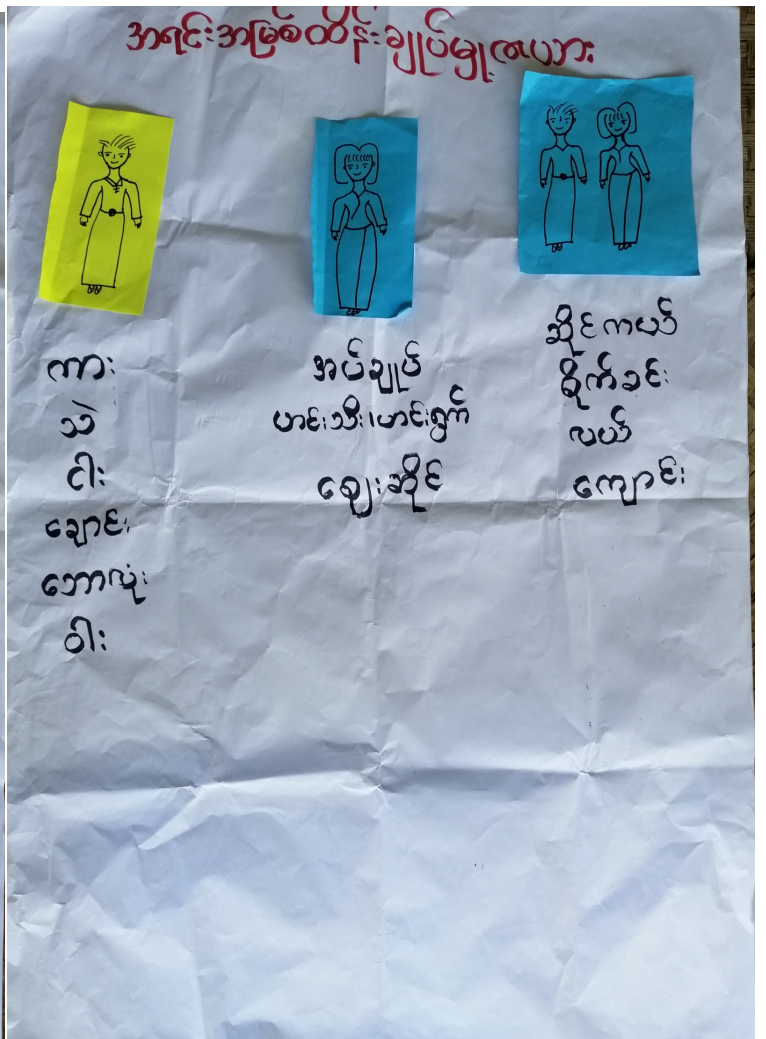 အရင်းအမြစ်ထိန်းချုပ်မှုဇယား
ကား
သဲ
ငါး
ချောင်း
ဘောလုံး
ဝါး
အပ်ချုပ်
ဟင်းသီး၊ဟင်းရွက်
ဈေးဆိုင်
ဆိုင်ကယ်
စိုက်ခင်း
လယ်
ကျောင်း